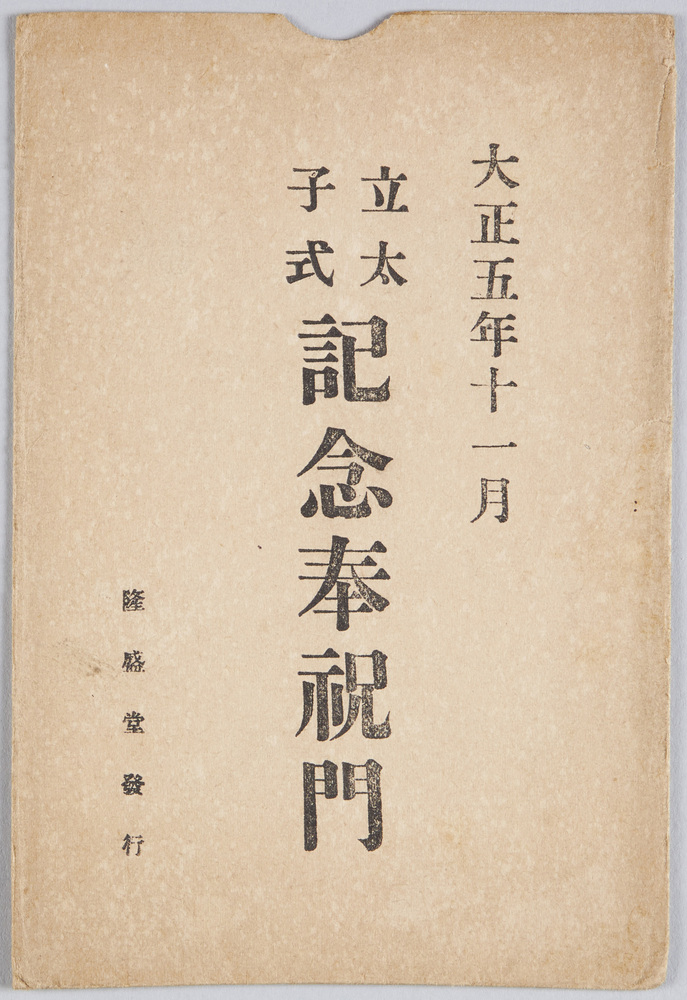 大正五年十一月
立太子式記念奉祝門
隆盛堂發行